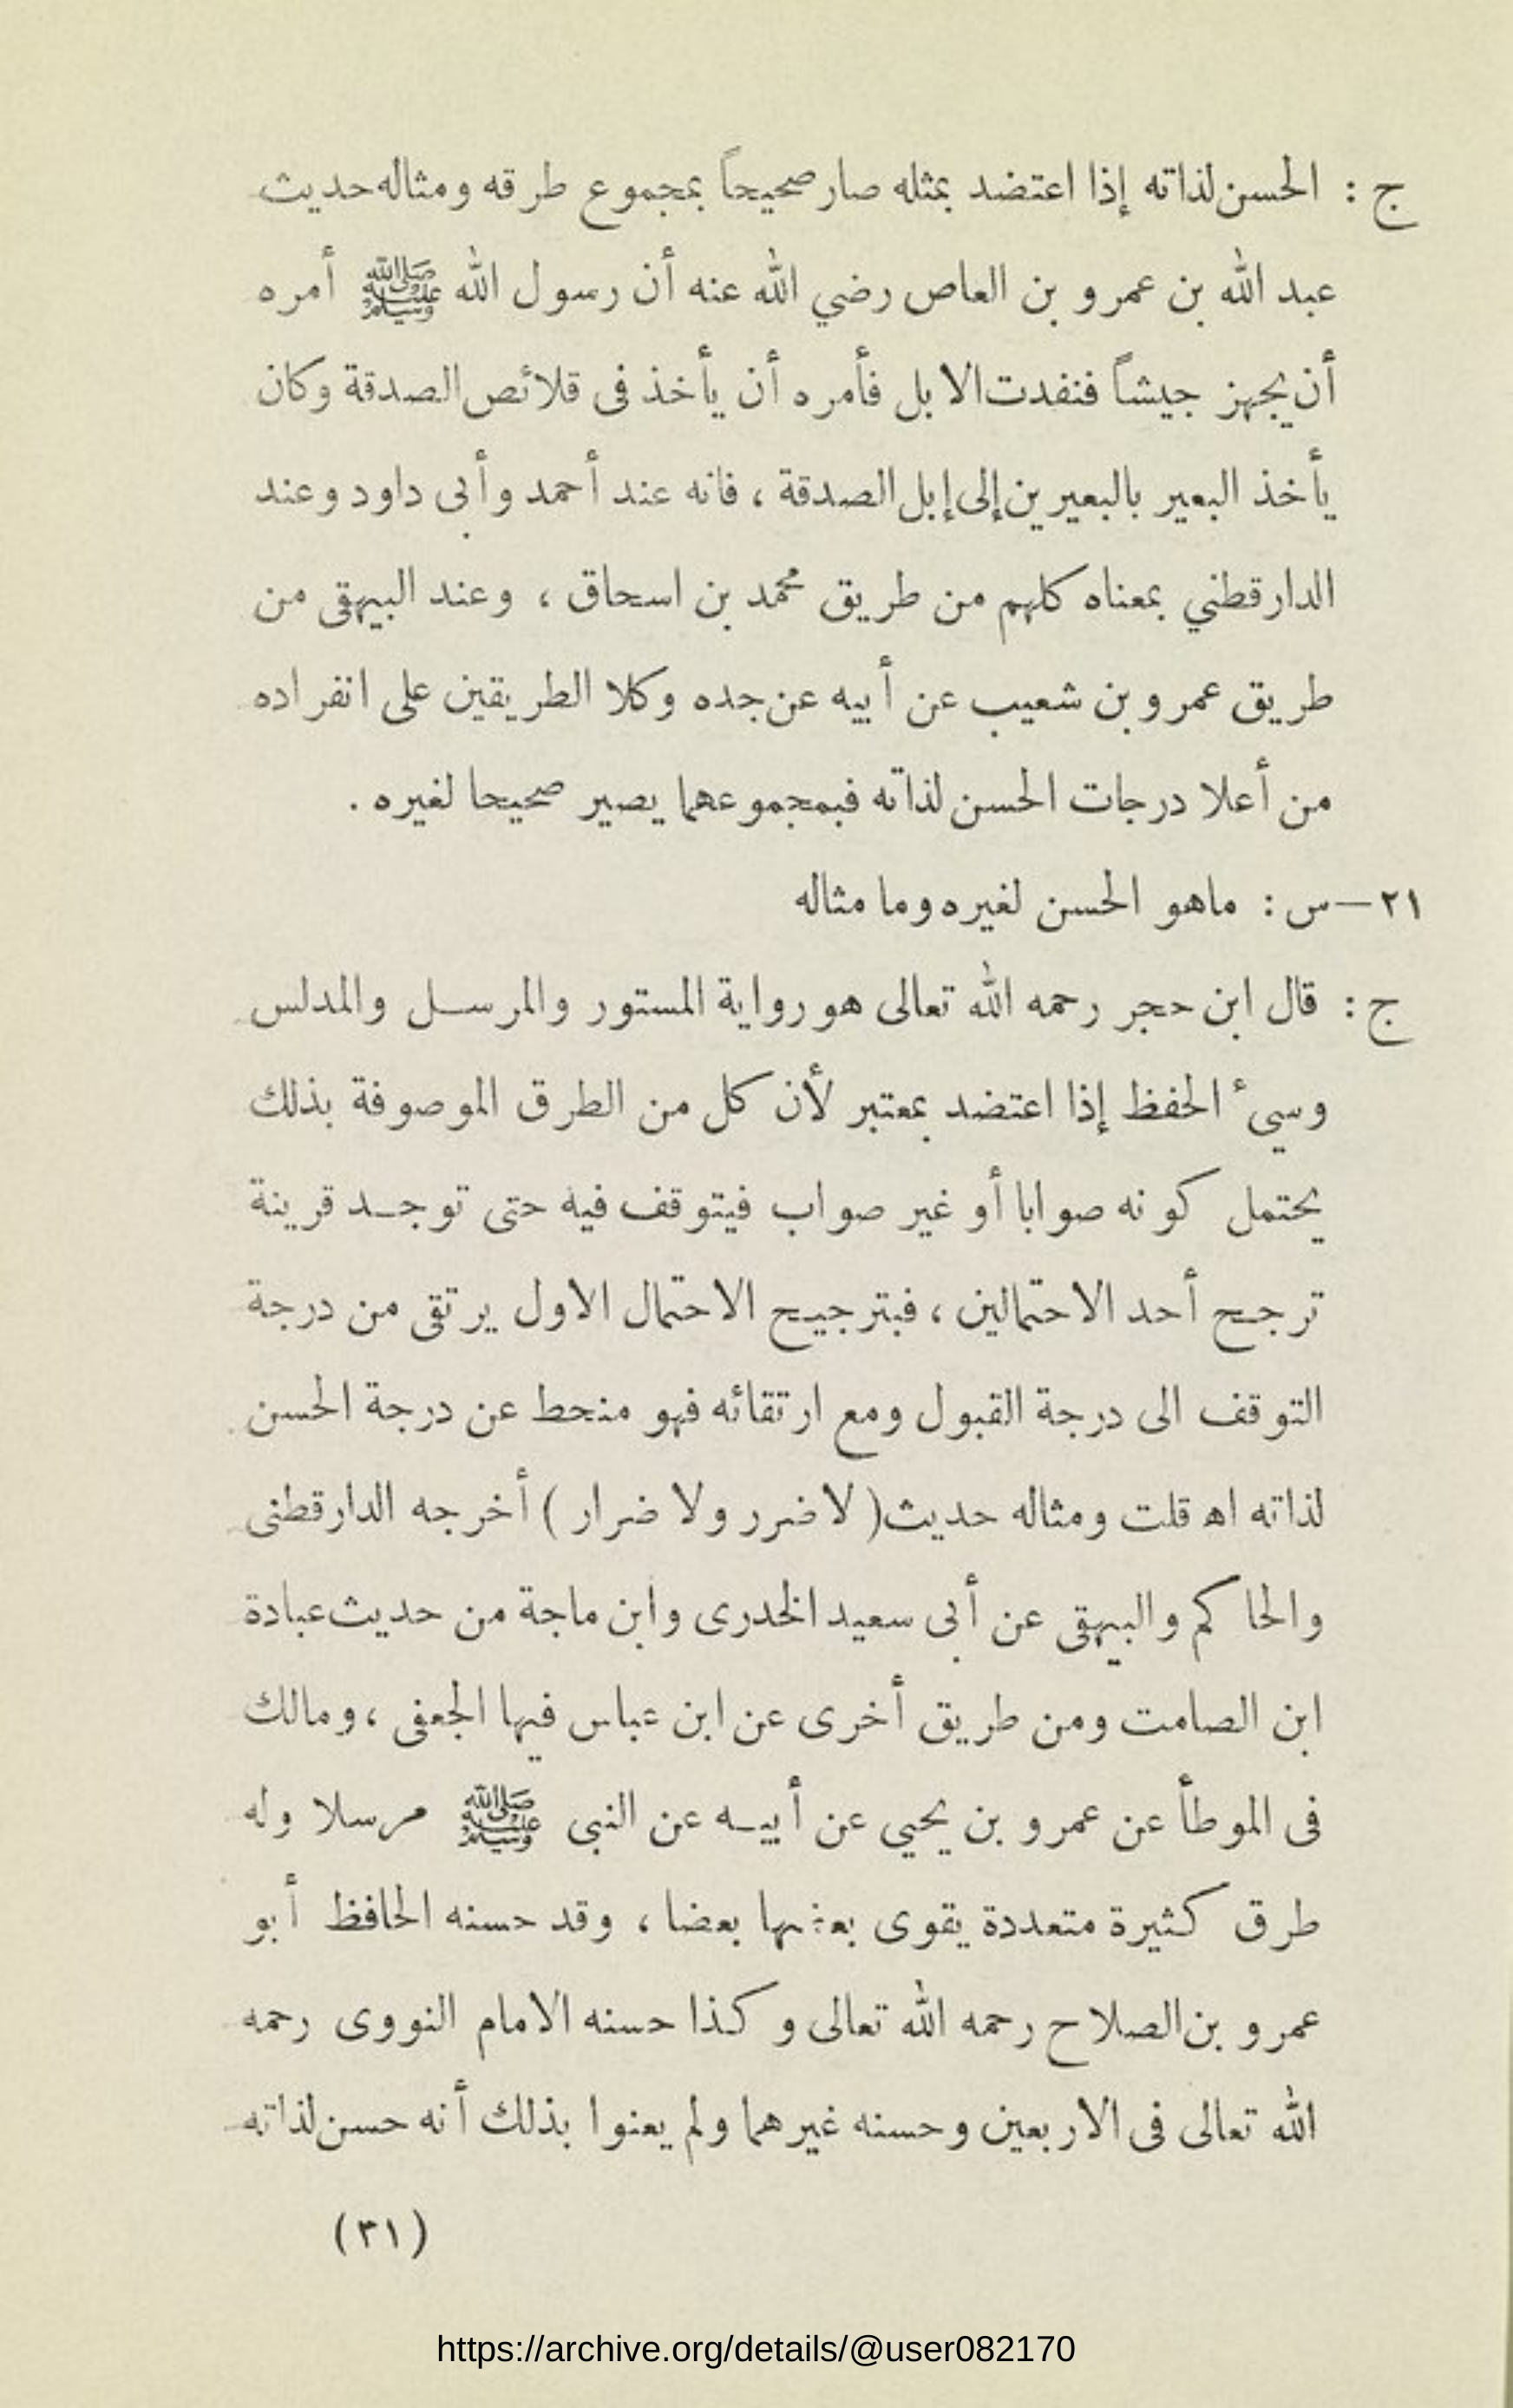 ج : الحسن لذاته إذا اعتضد بمثله صار صحيحاً بمجموع طرقه ومثاله حديث
عبد الله بن عمرو بن العاص رضي الله عنه أن رسول الله ﷺ أمره
أن يجهز جيشاً فنفدت الابل فأمره أن يأخذ فى قلائص الصدقة وكان
يأخذ البعير بالبعيرين إلى إبل الصدقة ، فانه عند أحمد وأبى داود وعند
الدارقطني بمعناه كلهم من طريق محمد بن اسحاق ، وعند البيهقى من
طريق عمرو بن شعيب عن أبيه عن جده وكلا الطريقين على انفراده
من أعلا درجات الحسن لذاته فبمجموعهما يصير صحيحا لغيره .
٢١ — س : ماهو الحسن لغيره وما مثاله
ج : قال ابن حجر رحمه الله تعالى هو رواية المستور والمرسل والمدلس
وسيء الحفظ إذا اعتضد بمعتبر لأن كل من الطرق الموصوفة بذلك
يحتمل كونه صوابا أو غير صواب فيتوقف فيه حتى توجد قرينة
ترجح أحد الاحتمالين ، فبترجيح الاحتمال الاول يرتقى من درجة
التوقف الى درجة القبول ومع ارتقائه فهو منحط عن درجة الحسن
لذاته اه قلت ومثاله حديث ( لا ضرر ولا ضرار ) أخرجه الدارقطنى
والحاكم والبيهقى عن أبى سعيد الخدرى وابن ماجة من حديث عبادة
ابن الصامت ومن طريق أخرى عن ابن عباس فيها الجعفى ، ومالك
فى الموطأ عن عمرو بن يحيي عن أبيه عن النبى ﷺ مرسلا وله
طرق كثيرة متعددة يقوى بعضها بعضا ، وقد حسنه الحافظ أبو
عمرو بن الصلاح رحمه الله تعالى وكذا حسنه الامام النووى رحمه
الله تعالى فى الاربعين وحسنه غيرهما ولم يعنوا بذلك أنه حسن لذاته
(٣١)
https://archive.org/details/@user082170